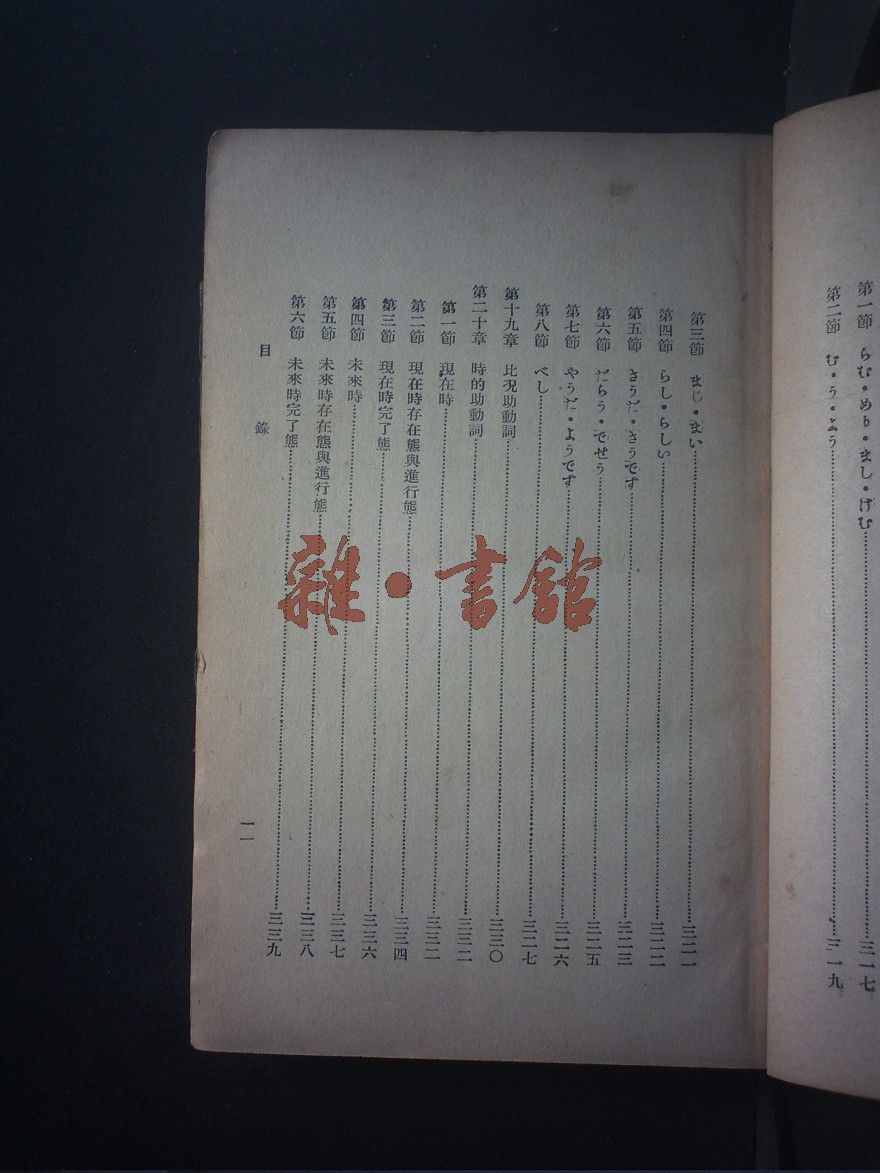 第一節　らむ・めり・まし・けむ……三一七
第二節　む・う・よう……三一九
第三節　まじ・まい……三二一
第四節　らし・らしい……三二二
第五節　さうだ・さうです……三二三
第六節　だらう・でせう……三二五
第七節　やうだ・ようです……三二六
第八節　べし……三二七
第十九章　比況助動詞……三三〇
第二十章　時的助動詞……三三二
第一節　現在時……三三二
第二節　現在時存在態與進行態……三三四
第三節　現在時完了態……三三六
第四節　未來時……三三七
第五節　未來時存在態與進行態……三三八
第六節　未來時完了態……三三九
目錄
一一
雜・書館